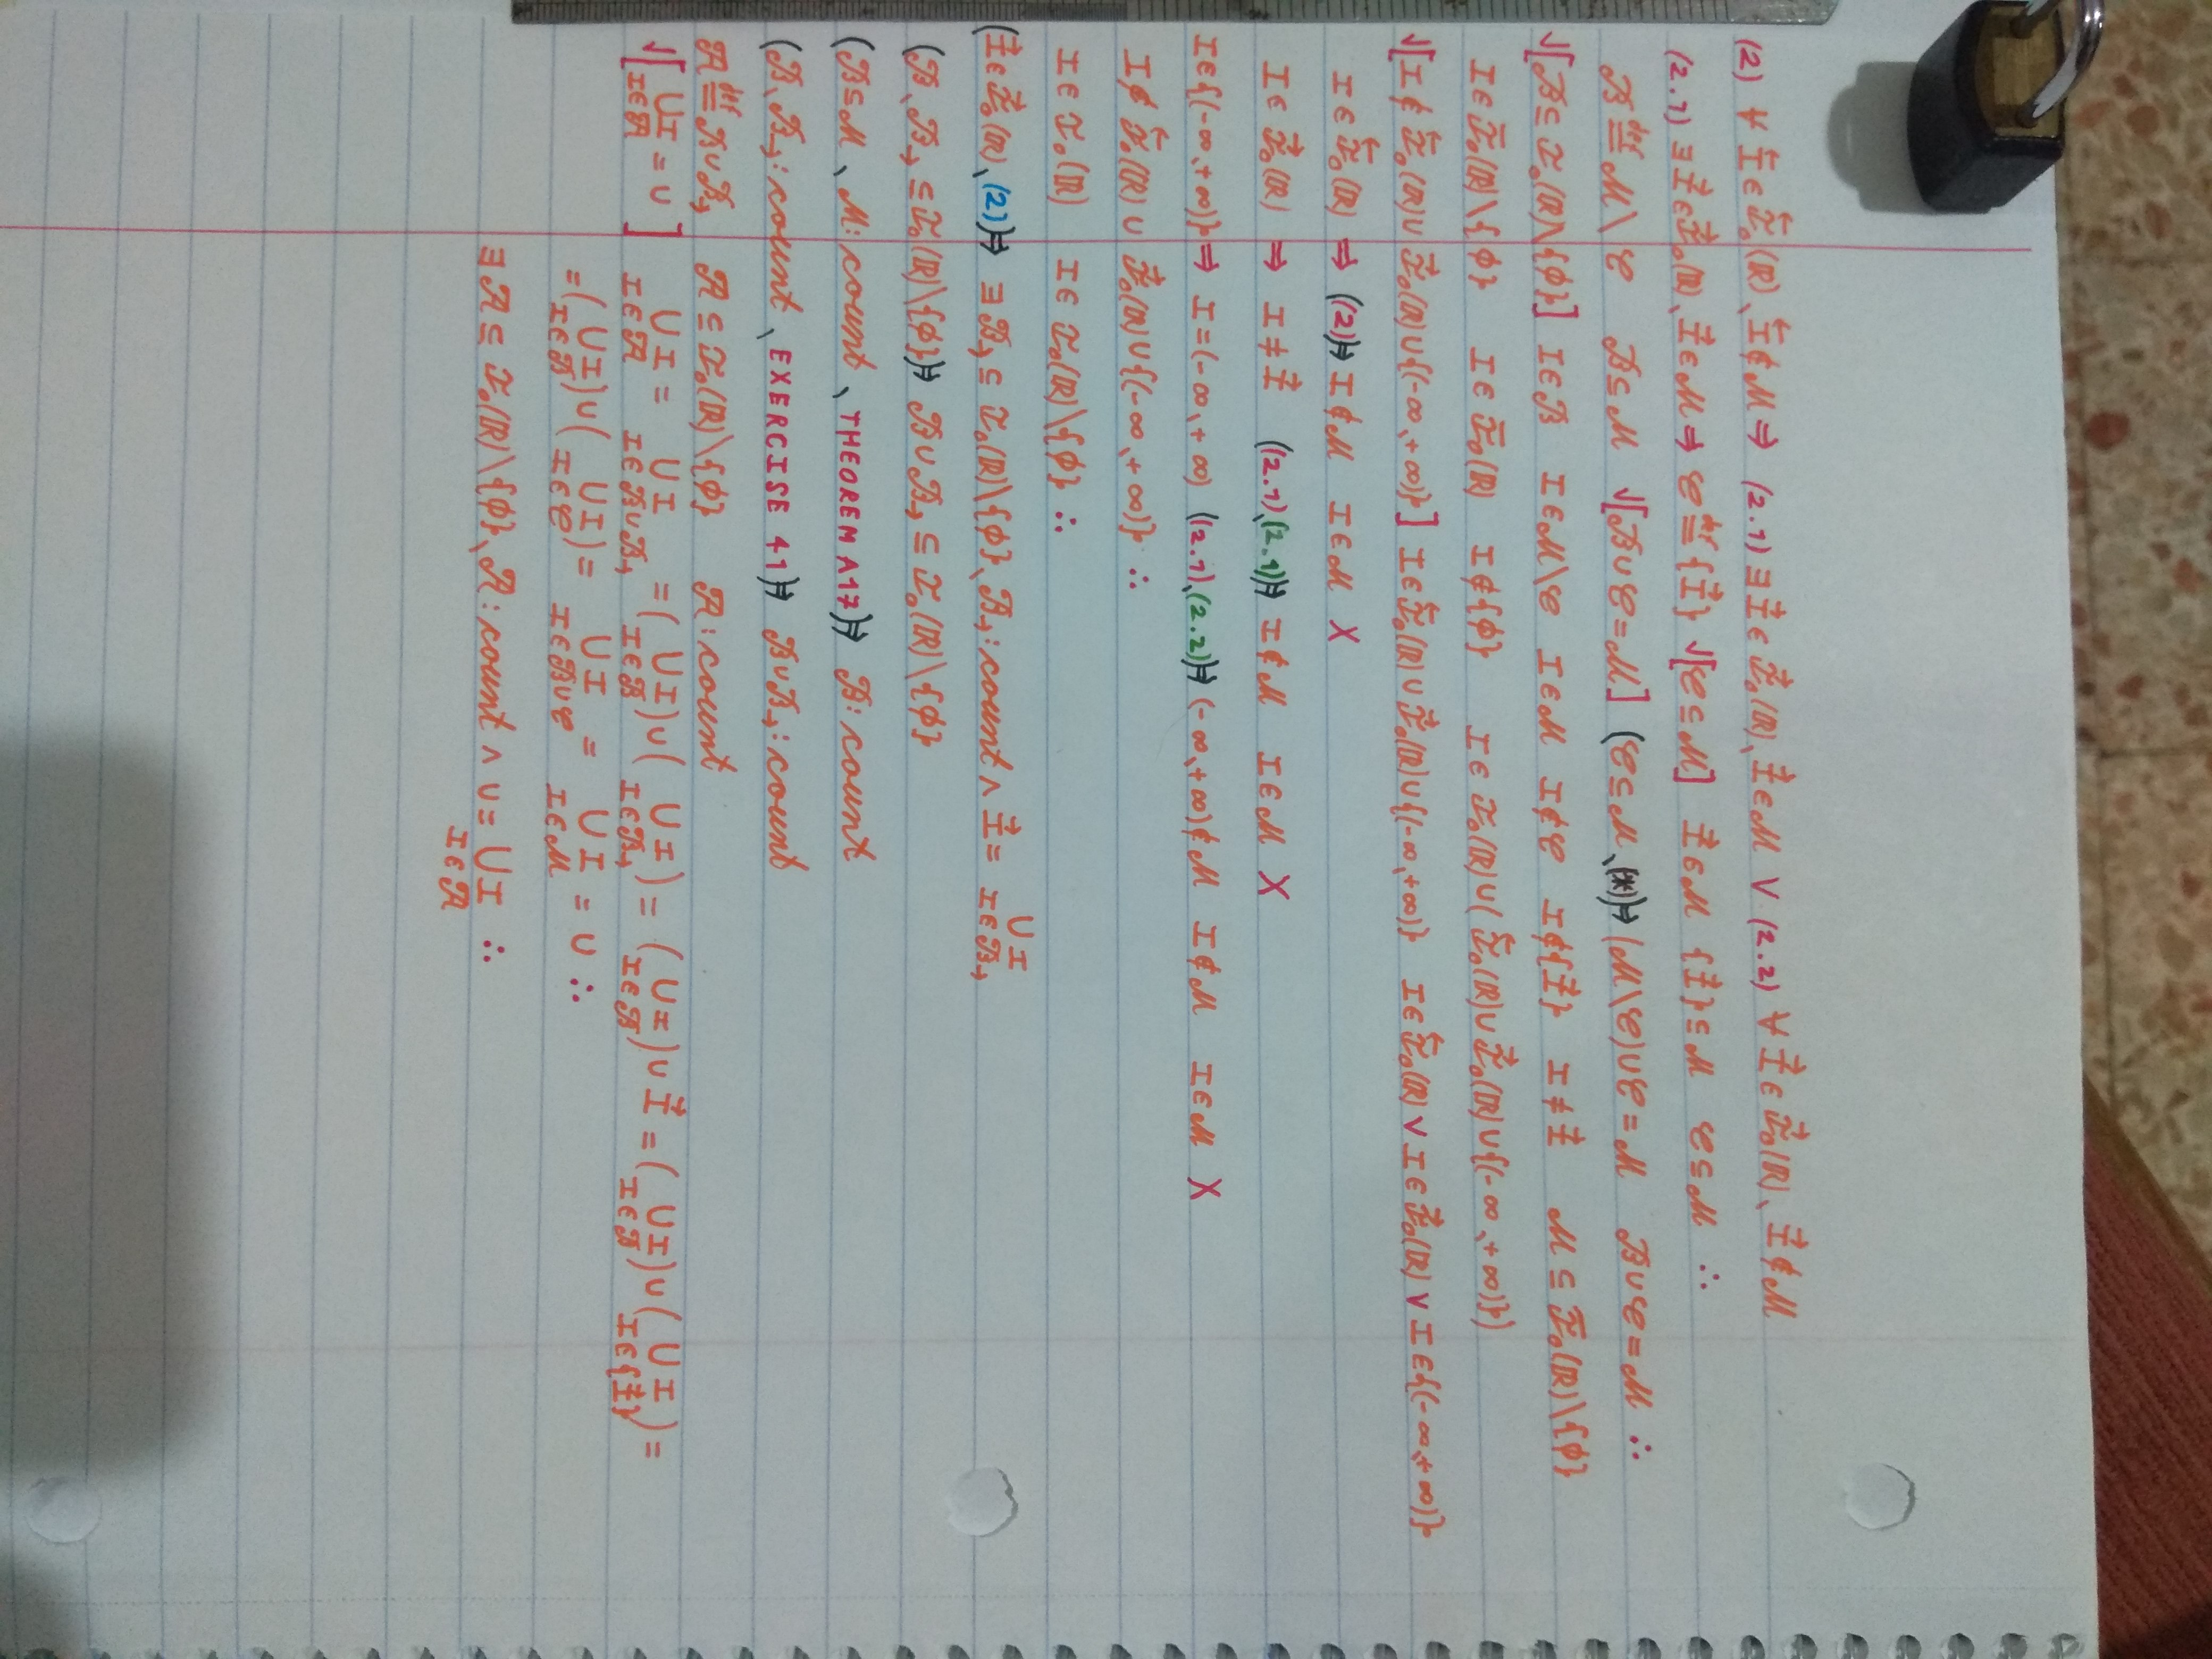 (2) ∀ I⃖ ∈ ℐ⃖ₒ(ℝ), I⃖ ∉ M ⇒ (2.1) ∃ I⃗ ∈ ℐ⃗ₒ(ℝ), I⃗ ∈ M ∨ (2.2) ∀ I⃗ ∈ ℐ⃗ₒ(ℝ), I⃗ ∉ M
(2.1) ∃ I⃗ ∈ ℐ⃗ₒ(ℝ), I⃗ ∈ M ⇒ 𝒞 ≝ {I⃗} √[𝒞 ⊆ M] I⃗ ∈ M {I⃗} ⊆ M 𝒞 ⊆ M ∴
ℬ ≝ M \ 𝒞 ℬ ⊆ M √[ℬ ∪ 𝒞 = M] (𝒞 ⊆ M, (*)) ⇒ (M \ 𝒞) ∪ 𝒞 = M ℬ ∪ 𝒞 = M ∴
√[ℬ ⊆ ℐₒ(ℝ) \ {ϕ}] I ∈ ℬ I ∈ M \ 𝒞 I ∈ M I ∉ 𝒞 I ∉ {I⃗} I ≠ I⃗ M ⊆ ℐ̅ₒ(ℝ) \ {ϕ}
I ∈ ℐ̅ₒ(ℝ) \ {ϕ} I ∈ ℐ̅ₒ(ℝ) I ∉ {ϕ} I ∈ ℐₒ(ℝ) ∪ (ℐ⃖ₒ(ℝ) ∪ ℐ⃗ₒ(ℝ) ∪ {(-∞,+∞)})
√[I ∉ ℐ⃖ₒ(ℝ) ∪ ℐ⃗ₒ(ℝ) ∪ {(-∞,+∞)}] I ∈ ℐ⃖ₒ(ℝ) ∪ ℐ⃗ₒ(ℝ) ∪ {(-∞,+∞)} I ∈ ℐ⃖ₒ(ℝ) ∨ I ∈ ℐ⃗ₒ(ℝ) ∨ I ∈ {(-∞,+∞)}
I ∈ ℐ⃖ₒ(ℝ) ⇒ ((2)) ⇒ I ∉ M I ∈ M X
I ∈ ℐ⃗ₒ(ℝ) ⇒ I ≠ I⃗ ((2.1), (2.1)) ⇒ I ∉ M I ∈ M X
I ∈ {(-∞,+∞)} ⇒ I = (-∞,+∞) ((2.1), (2.2)) ⇒ (-∞,+∞) ∉ M I ∉ M I ∈ M X
I ∉ ℐ⃖ₒ(ℝ) ∪ ℐ⃗ₒ(ℝ) ∪ {(-∞,+∞)} ∴
I ∈ ℐₒ(ℝ) I ∈ ℐₒ(ℝ) \ {ϕ} ∴
(I⃗ ∈ ℐ⃗ₒ(ℝ), (2)) ⇒ ∃ ℬ₁ ⊆ ℐₒ(ℝ) \ {ϕ}, ℬ₁ : count ∧ I⃗ = ∪I I∈ℬ₁
(ℬ, ℬ₁ ⊆ ℐₒ(ℝ) \ {ϕ}) ⇒ ℬ ∪ ℬ₁ ⊆ ℐₒ(ℝ) \ {ϕ}
(ℬ ⊆ M, M : count, THEOREM A17) ⇒ ℬ : count
(ℬ, ℬ₁ : count, EXERCISE 41) ⇒ ℬ ∪ ℬ₁ : count
𝒜 ≝ ℬ ∪ ℬ₁ 𝒜 ⊆ ℐₒ(ℝ) \ {ϕ} 𝒜 : count
√[∪I I∈𝒜 = U] ∪I I∈𝒜 = ∪I I∈ℬ∪ℬ₁ = (∪I I∈ℬ) ∪ (∪I I∈ℬ₁) = (∪I I∈ℬ) ∪ I⃗ = (∪I I∈ℬ) ∪ (∪I I∈{I⃗}) =
= (∪I I∈ℬ) ∪ (∪I I∈𝒞) = ∪I I∈ℬ∪𝒞 = ∪I I∈M = U ∴
∃ 𝒜 ⊆ ℐₒ(ℝ) \ {ϕ}, 𝒜 : count ∧ U = ∪I I∈𝒜 ∴